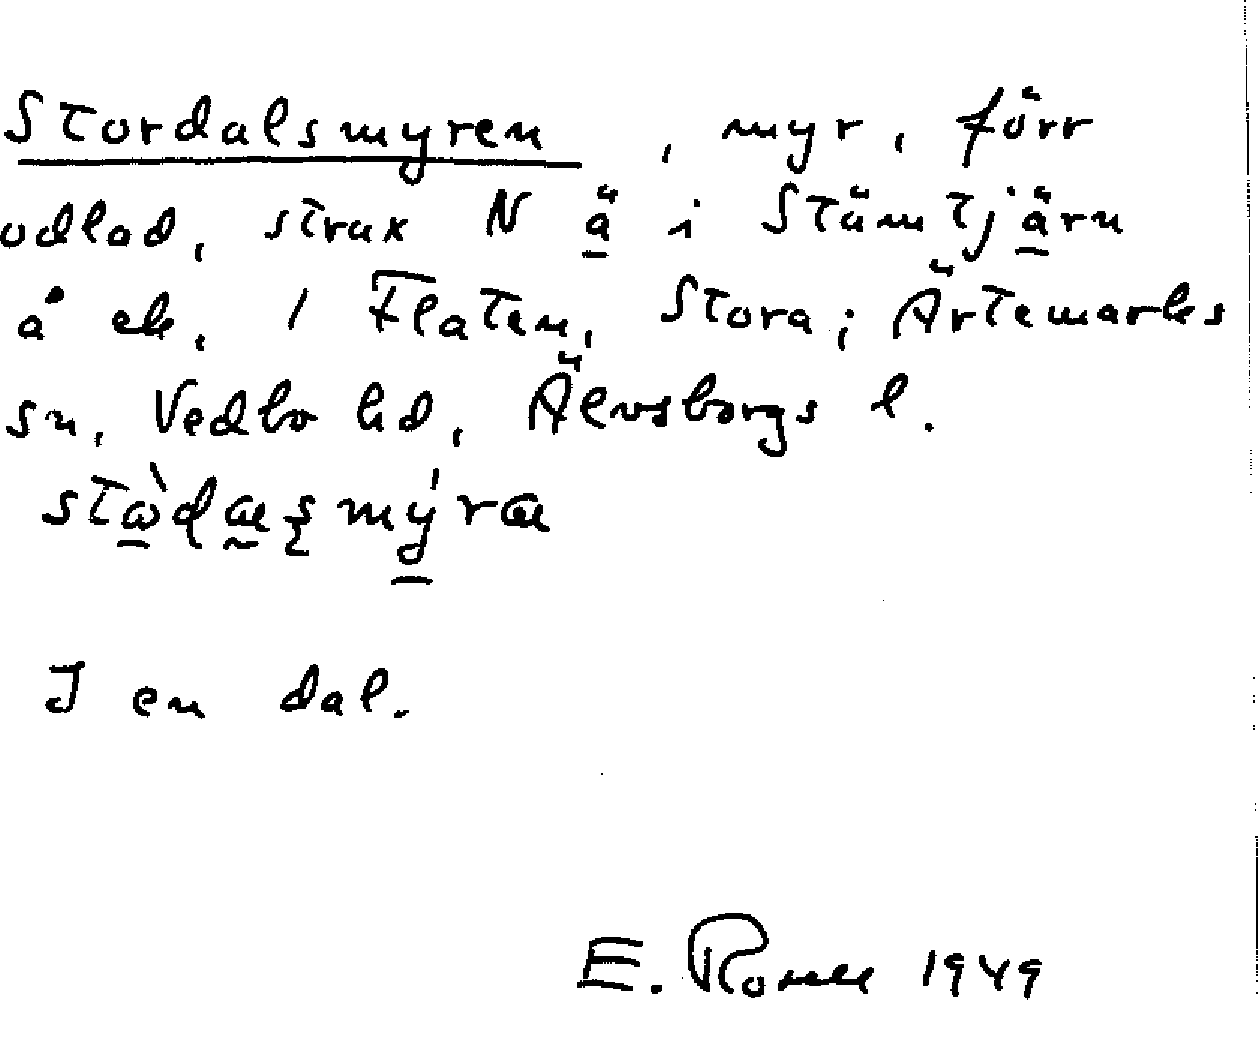 Stordalsmyren, myr, förr
odlad, strax N ä i Stämtjärn
å ek. 1 Flaten, Stora; Ärtemarks
sn, Vedbo hd, Älvsborgs l.
I en dal.
E. 1949